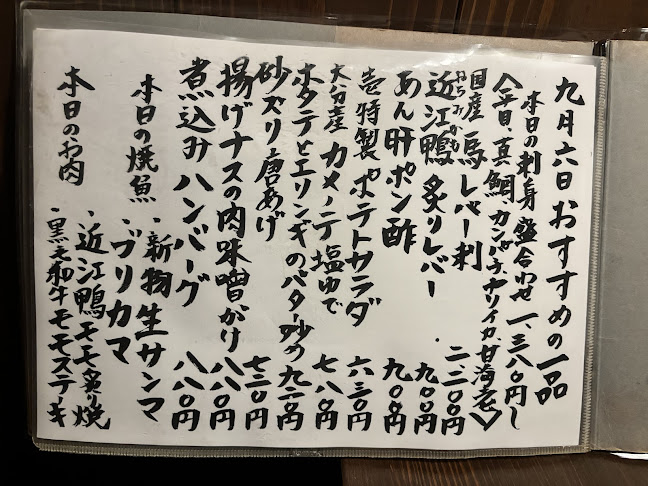 九月六日おすすめの一品
本日の刺身盛合わせ 一、三八〇円〜
〈平目、真鯛、カンパチ、ヤリイカ、甘海老〉
国産 馬レバー刺 二二〇〇円
おうみかも
近江鴨 炙りレバー 九〇〇円
あん肝ポン酢 九〇〇円
壱特製 ポテトサラダ 六三〇円
大分産 カメノテ塩ゆで 七八〇円
ホタテとエリンギのバター炒め 九二〇円
砂ズリ唐あげ 七二〇円
揚げナスの肉味噌かけ 八八〇円
煮込みハンバーグ 八八〇円
本日の焼魚 ・新物生サンマ
・ブリカマ
本日のお肉 ・近江鴨モモ炙り焼
・黒毛和牛モモステーキ